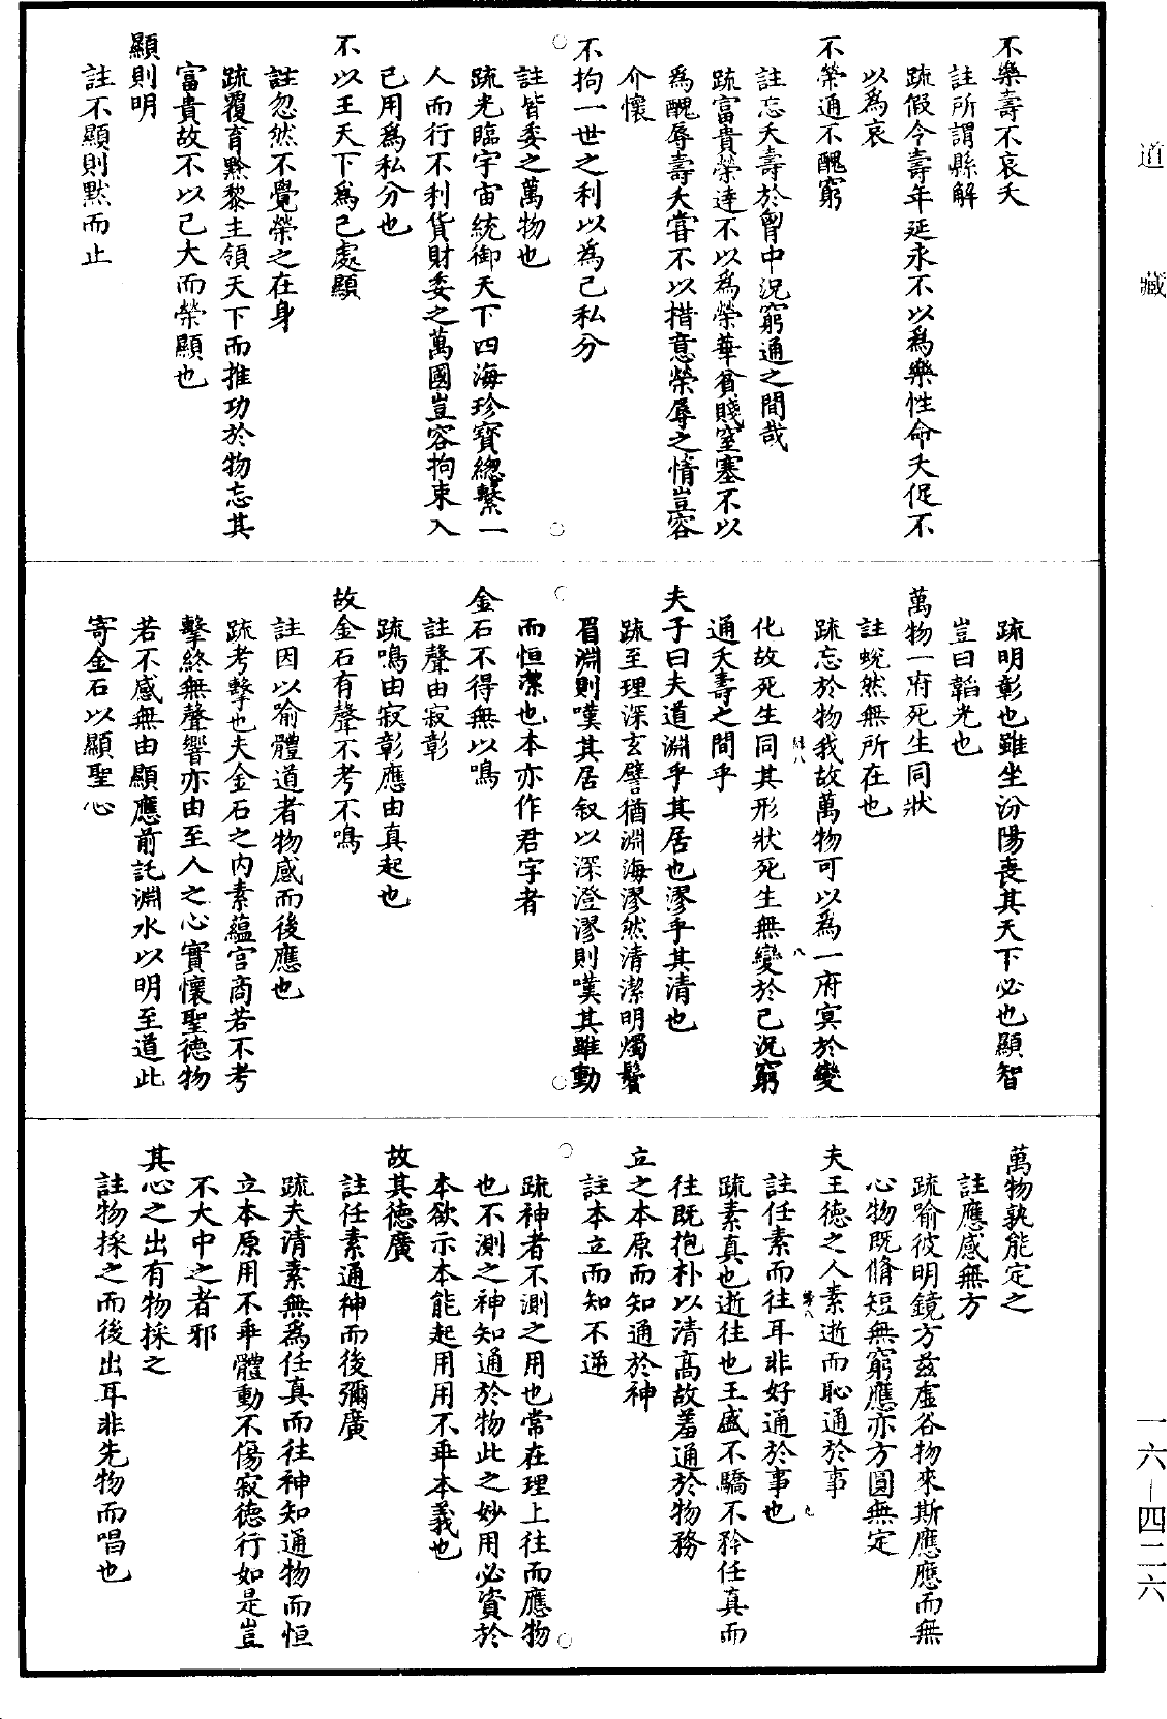 道藏
不樂壽不哀夭
註所謂縣解
疏假令壽年延永不以爲樂性命夭促不
以爲哀
不榮通不醜窮
註忘夭壽於胷中況窮通之間哉
疏富貴榮達不以爲榮華貧賤窒塞不以
爲醜辱壽夭嘗不以措意榮辱之情豈容
介懷
不拘一世之利以爲己私分
註皆委之萬物也
疏光臨宇宙統御天下四海珍寳總繫一
人而行不利貨財委之萬國豈容拘束入
己用爲私分也
不以王天下爲己處顯
註忽然不覺榮之在身
疏覆育黔黎主領天下而推功於物忘其
富貴故不以己大而榮顯也
顯則明
註不顯則默而止
疏明彰也雖坐汾陽喪其天下必也顯智
豈曰韜光也
萬物一府死生同狀
註蛻然無所在也
疏忘於物我故萬物可以爲一府冥於變
化故死生同其形狀死生無變於己況窮
通夭壽之間乎
夫子曰夫道淵乎其居也漻乎其清也
疏至理深玄譬猶淵海漻然清潔明燭鬢
眉淵則嘆其居叙以深澄漻則嘆其雖動
而恒潔也本亦作君字者
金石不得無以鳴
註聲由寂彰
疏鳴由寂彰應由真起也
故金石有聲不考不鳴
註因以喻體道者物感而後應也
疏考擊也夫金石之內素蘊宫商若不考
擊終無聲響亦由至人之心實懷聖德物
若不感無由顯應前託淵水以明至道此
寄金石以顯聖心
萬物孰能定之
註應感無方
疏喻彼明鏡方茲虛谷物來斯應應而無
心物既脩短無窮應亦方圓無定
夫王德之人素逝而恥通於事
註任素而往耳非好通於事也
疏素真也逝往也王盛不驕不矜任真而
往既抱朴以清高故羞通於物務
立之本原而知通於神
註本立而知不逆
疏神者不測之用也常在理上往而應物
也不測之神知通於物此之妙用必資於
本欲示本能起用用不乖本義也
故其德廣
註任素通神而後彌廣
疏夫清素無爲任真而往神知通物而恒
立本原用不乖體動不傷寂德行如是豈
不大中之者邪
其心之出有物採之
註物採之而後出耳非先物而唱也
一六－四二六